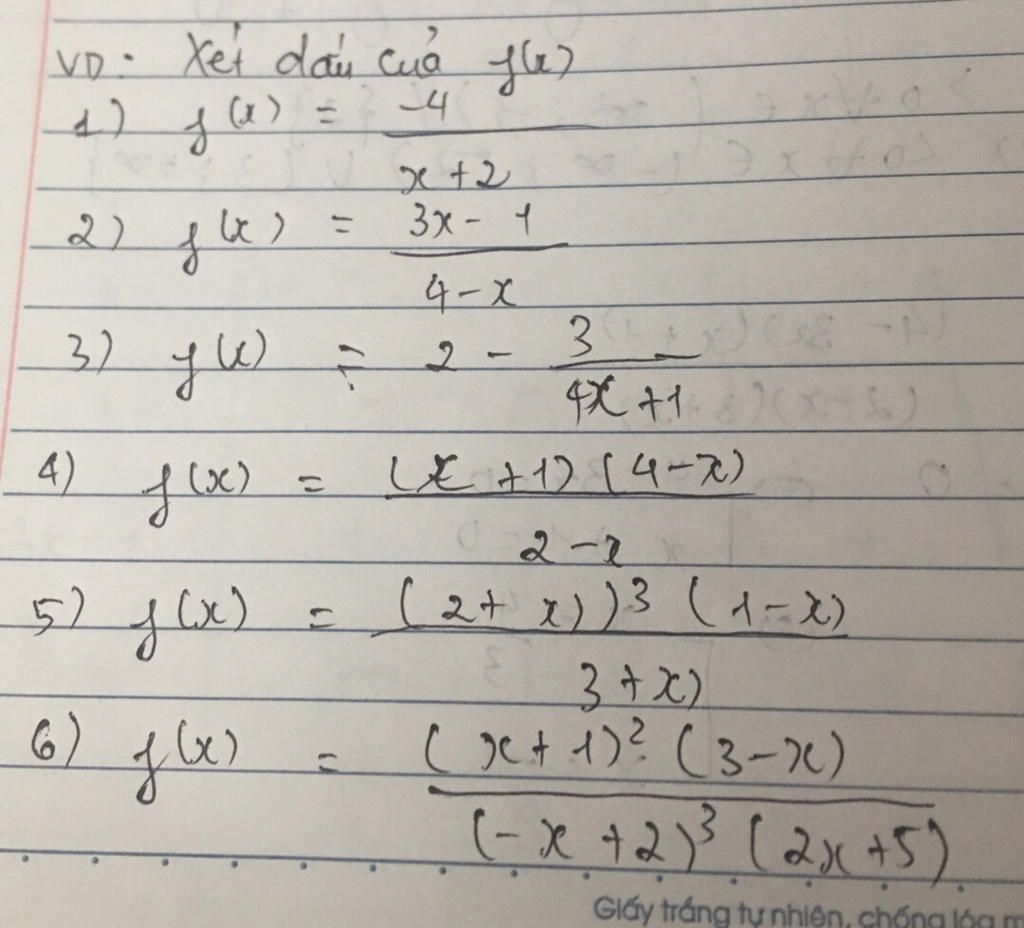 VD: Xét dấu của f(x)
1) f(x) = -4
x+2
2) f(x) = 3x - 1
4 - x
3) f(x) = 2 - 3
4x+1
4) f(x) = (x+1)(4-x)
2-x
5) f(x) = (2+x))³ (1-x)
3+x)
6) f(x) = (x+1)² (3-x)
(-x+2)³ (2x+5)
Giấy trắng tự nhiên, chống lóa